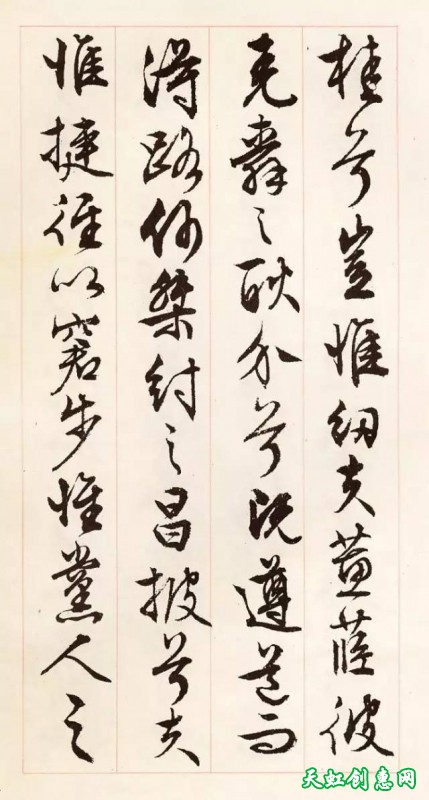 桂兮豈惟紉夫蕙茝彼
堯舜之耿介兮既遵道而
得路何桀紂之昌披兮夫
惟捷徑以窘步惟黨人之
天虹创惠网